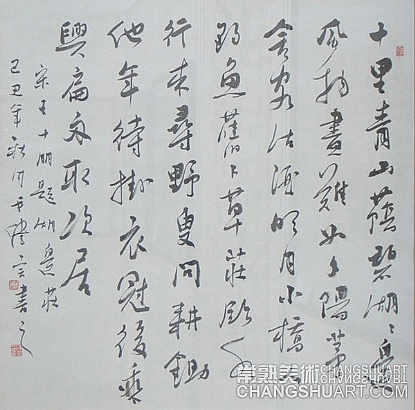 十里青山蔭碧湖〻邊
風物畫難如夕陽茅
舍客沽酒明月小橋人
釣魚舊卜草莊臨水
竹來尋野叟問耕鋤
他年待掛衣冠後乘
興扁舟取次居
宋王十朋題湖邊莊
己丑年秋月 雲書之
常熟美術 CHANGSHUART
CHANGSHUART.COM